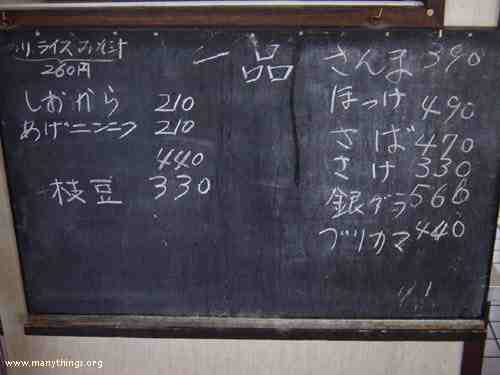 一品
小ライスみそ汁
260円
しおから 210
あげニンニク 210
440
枝豆 330
さんま 390
ほっけ 490
さば 470
さけ 330
銀ダラ 560
ブリカマ 440
www.manythings.org